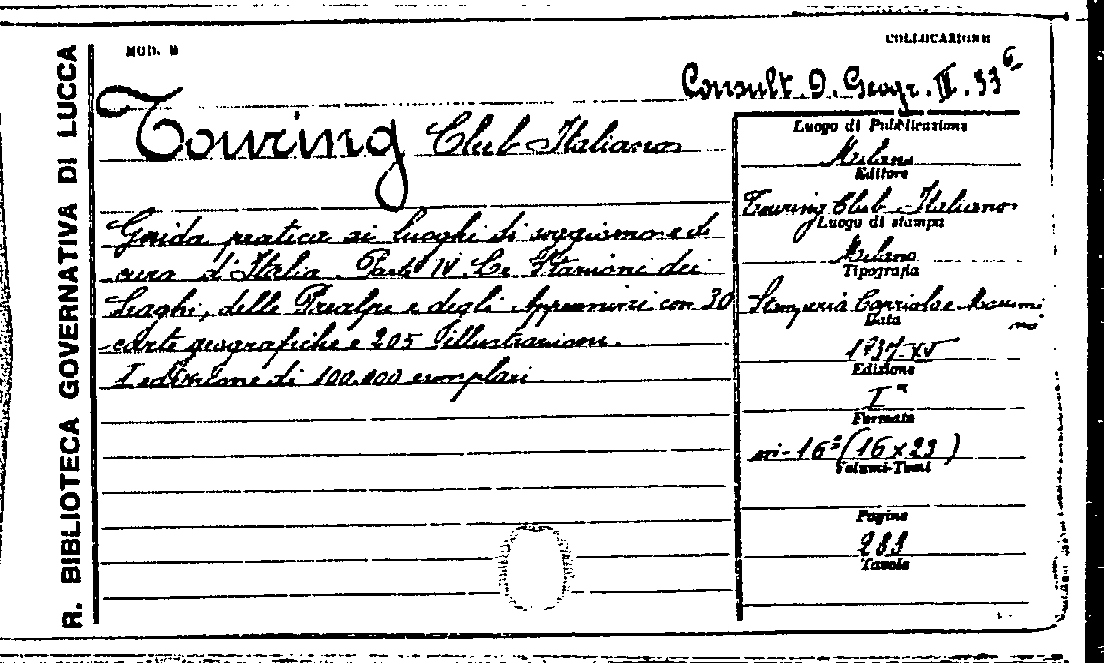 R. BIBLIOTECA GOVERNATIVA DI LUCCA
MOD. B
COLLOCAZIONE
Consult. D. Geogr. II. 33
Touring Club Italiano
Guida pratica ai luoghi di soggiorno e di
cura d'Italia. Parte IV Le Stazioni dei
Laghi, delle Prealpi e degli Appennini con 30
carte geografiche e 205 illustrazioni.
I edizione di 100.000 esemplari
Luogo di Pubblicazione
Milano
Editore
Touring Club Italiano
Luogo di stampa
Milano
Tipografia
Stamperia
Data
1937-XV
Edizione
Iª
Formato
in-16° (16x23)
Volumi-Tomi
Pagine
Tavole